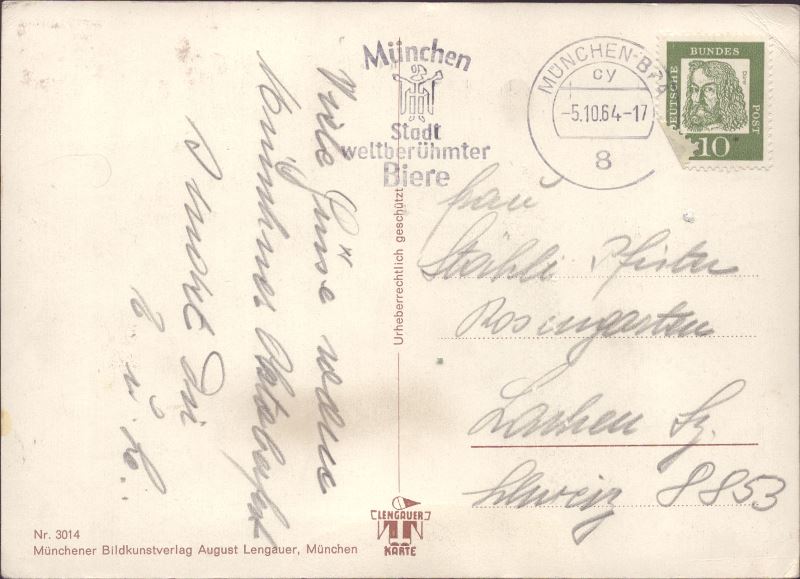 München
Stadt
weltberühmter
Biere
MÜNCHEN-BPA
cy
-5.10.64-17
8
DEUTSCHE
BUNDES
POST
Dürer
10
Viele Grüsse vom
Münchner Oktoberfest
Frau
Stähli Pfister
Rosengarten
Lachen Sz.
Schweiz 8853
Urheberrechtlich geschützt
LENGAUER
KARTE
Nr. 3014
Münchener Bildkunstverlag August Lengauer, München